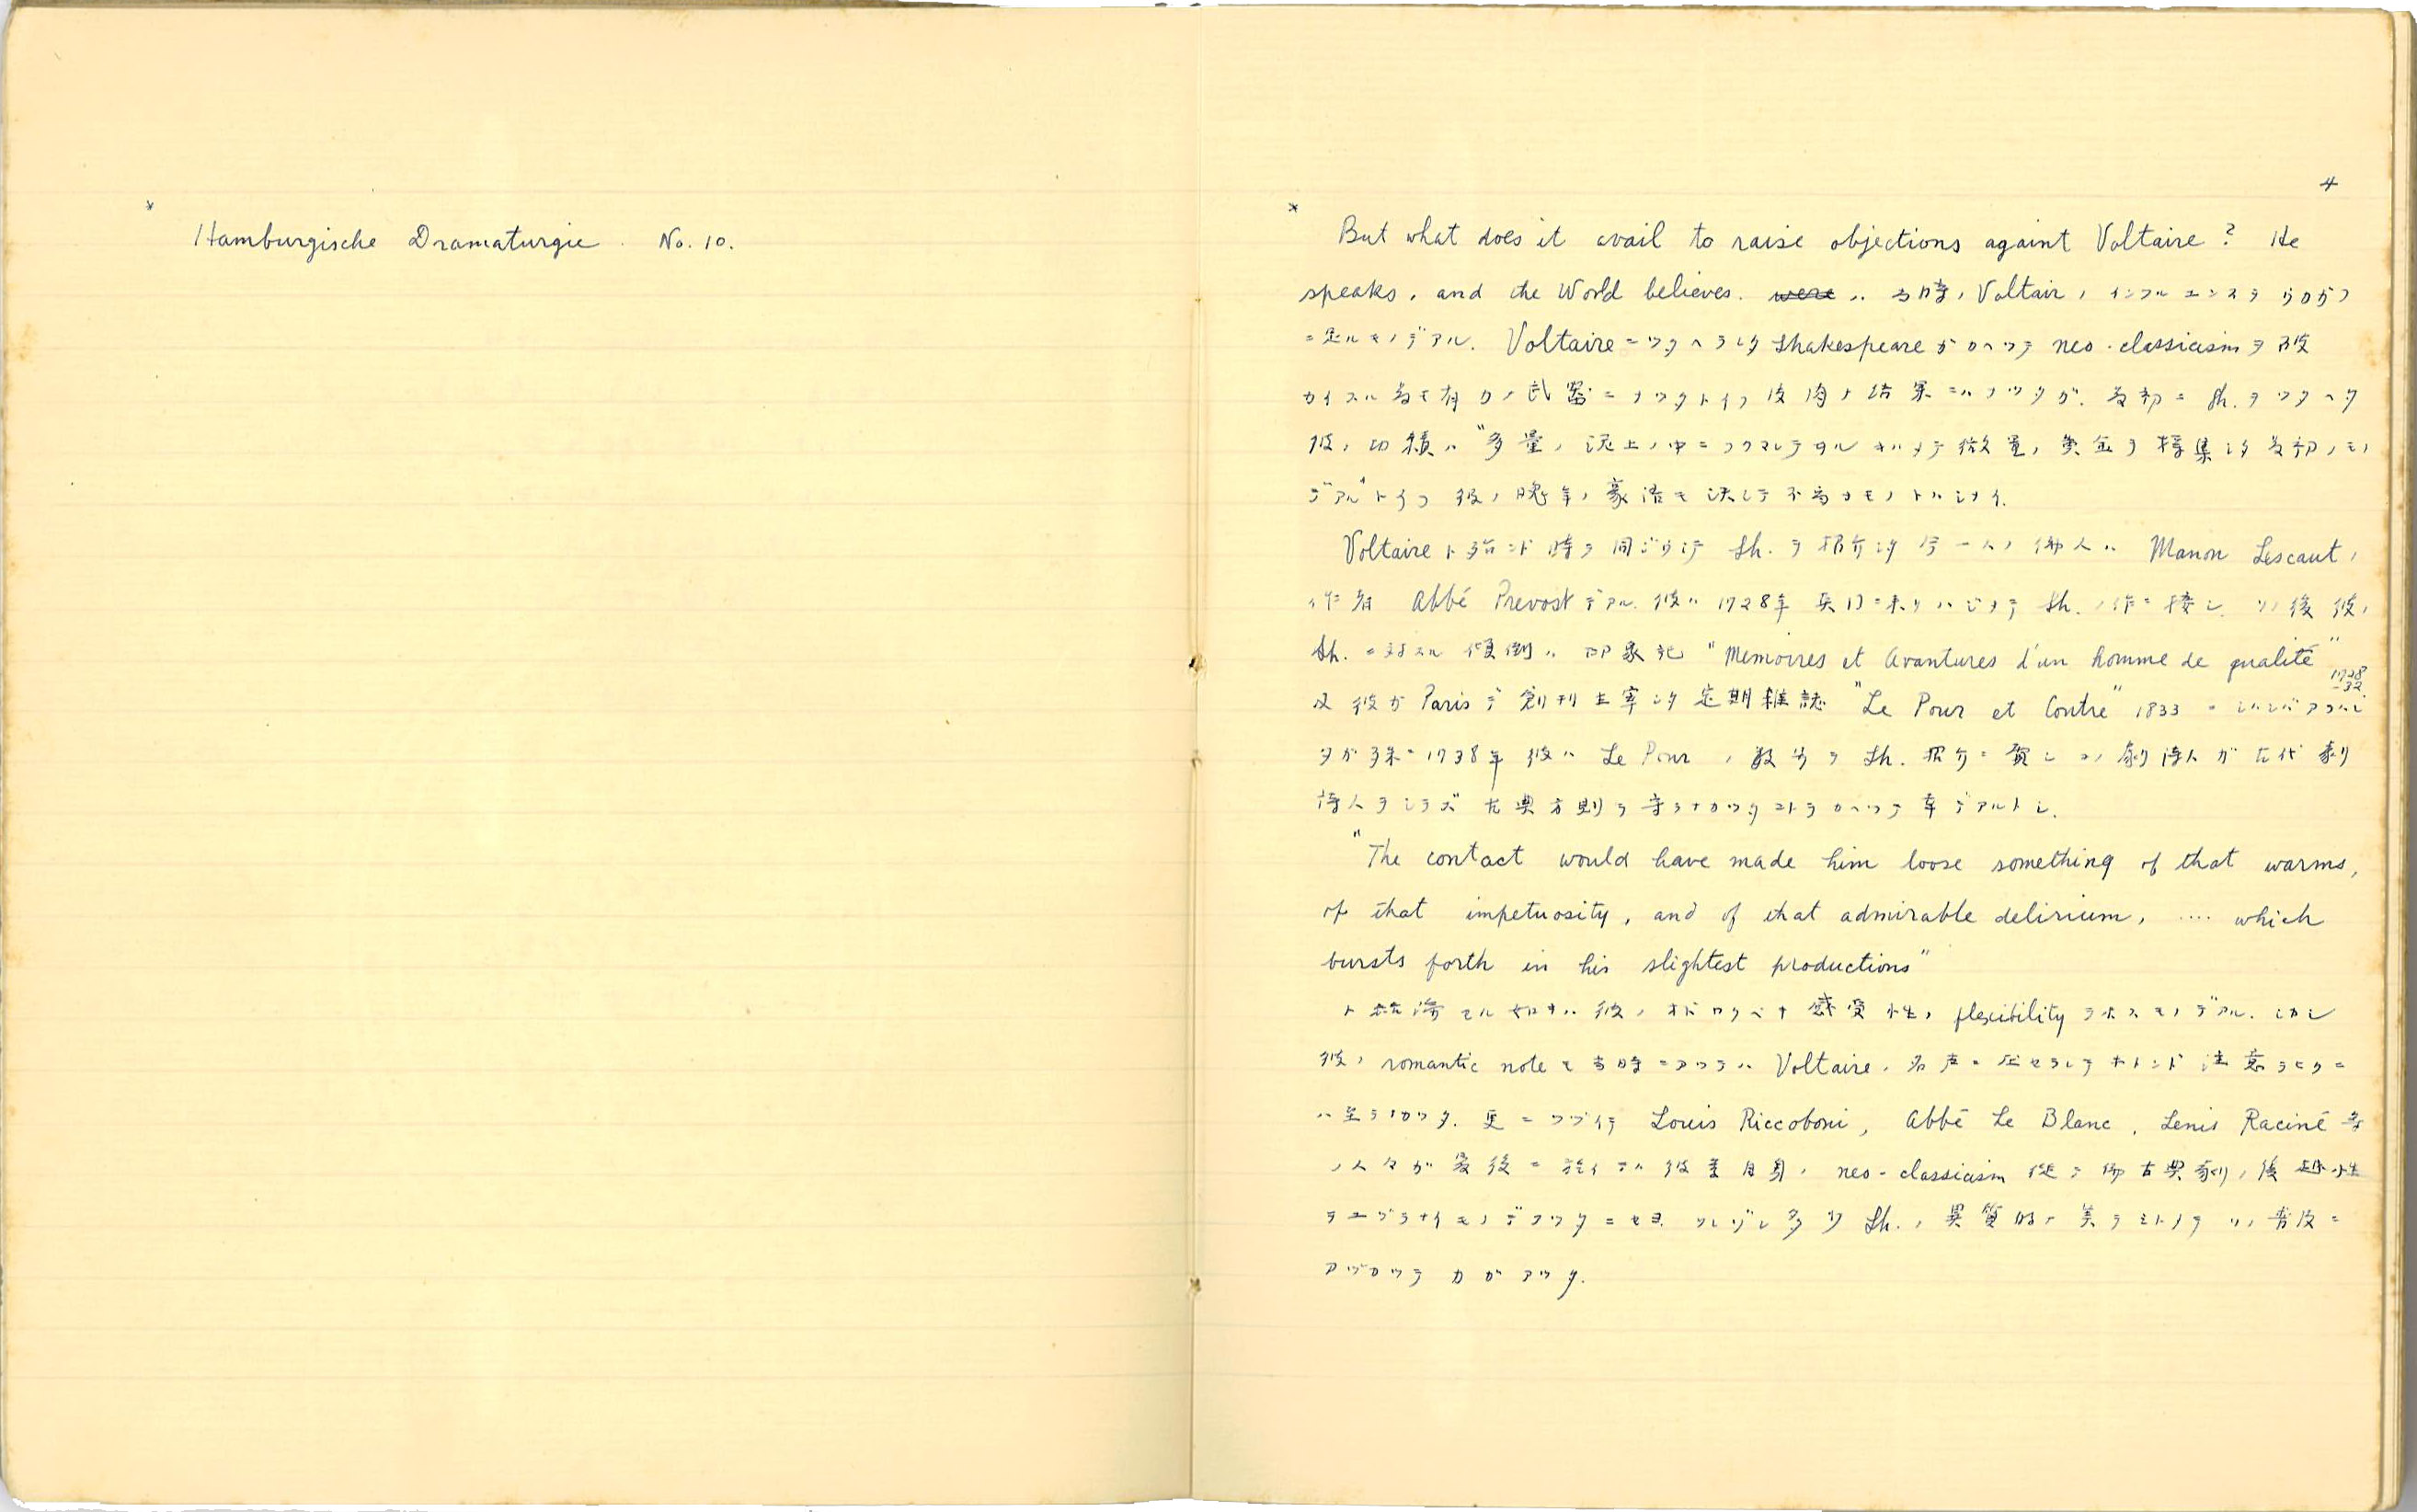 *
Hamburgische Dramaturgie. No. 10.
4
*
But what does it avail to raise objections againt Voltaire? He
speaks, and the World believes. were ハ 当時ノ Voltairノ インフルエンスヲ ウカガフ
ニ足ルモノデアル. Voltaireニツタヘラレタ Shakespeareガカヘッテ neo-classicismヲ
カイスル 為モ有力ノ武器ニナッタトイフ皮肉ナ結果ニハナッタガ. 為却ニ Sh.ヲツタヘタ
彼ノ功績ハ "多量ノ泥土ノ中ニフクマレテヰル キハメテ微量ノ黄金ヲ採集シタ
デアル" トイフ 彼ノ晩年ノ豪語モ決シテ不当ナモノトハシナイ.
Voltaireト殆ンド時ヲ同ジウシテ Sh.ヲ紹介シタ 今一人ノ佛人ハ Manon Lescautノ
作者 Abbé Prevostデアル. 彼ハ1728年 英国ニ来リハジメテ Sh.ノ作ニ接シ. ソノ後彼ノ
Sh.ニ対スル傾倒ハ 印象記 "Memoires et Avantures d'un homme de qualité" 1728-32.
及 彼ガParisデ創刊主宰シタ定期雑誌 "Le Pour et Contre" 1833 ニシバシバアラハレ
タガ殊ニ1738年 彼ハ Le Pourノ数号ヲ Sh. 紹介ニ費シ コノ劇詩人ガ古代劇
詩人ヲシラズ 古典方則ヲ守ラナカッタコトヲカヘッテ幸デアルトシ.
"The contact would have made him loose something of that warms,
of that impetuosity, and of that admirable delirium, .... which
bursts forth in his slightest productions"
ト 如キハ 彼ノオドロクベキ感受性ノ flexibilityヲ示スモノデアル. シカシ
彼ノ romantic noteモ当時ニアッテハ Voltaireノ名声ニ圧セラレテホトンド注意ヲヒクニ
ハ至ラナカッタ. 更ニツヅイテ Louis Riccoboni, Abbé Le Blanc, Lenis Raciné 等
ノ人々ガ最後ニ於イテハ 彼等自身ノ neo-classicism 従テ佛古典劇ノ優越性
ヲユヅラナイモノデアッタニセヨ. ソレゾレ多少 Sh.ノ異質的ナ美ヲミトメテ ソノ普及ニ
アヅカッテ力ガアッタ.